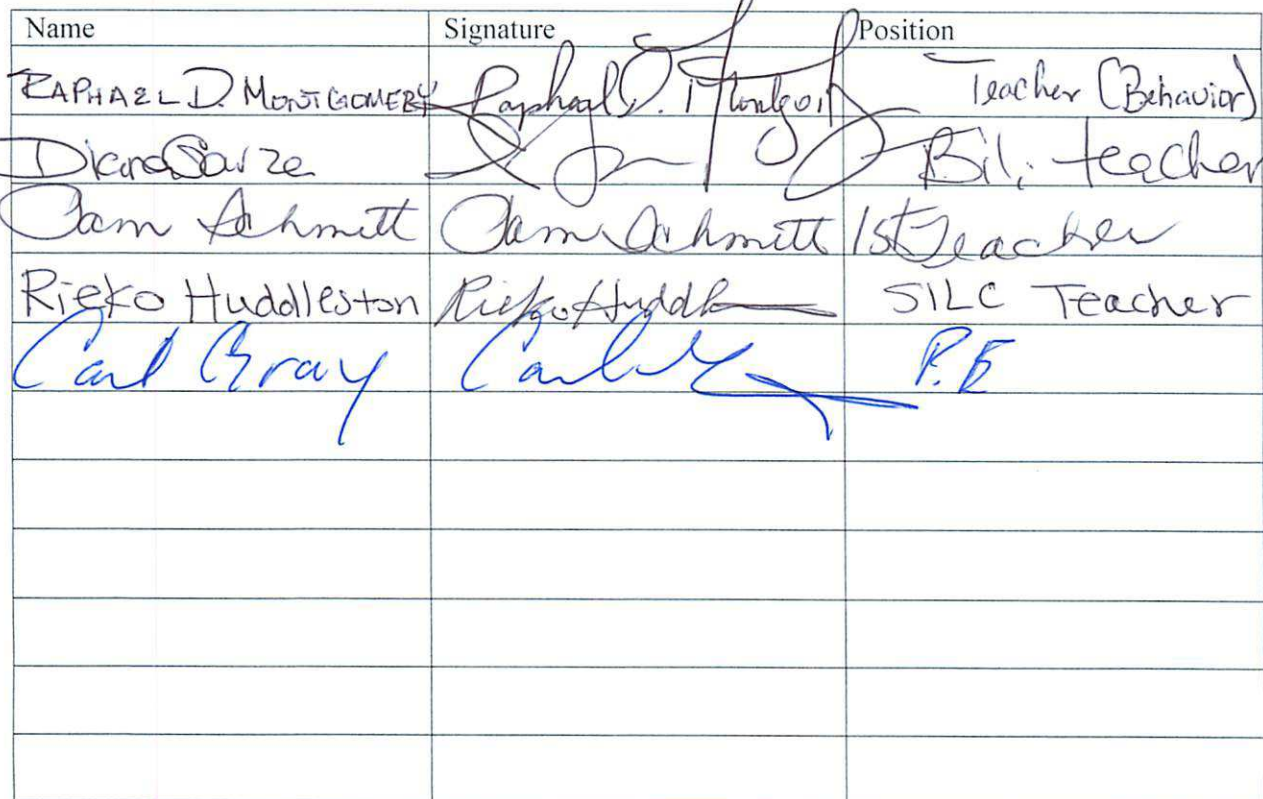 Name Signature Position
RAPHAEL D. MONTGOMERY Raphael D. Montgom Teacher (Behavior)
Diana Bil. teacher
Pam Schmitt Pam Schmitt 1st Teacher
Rieko Huddleston Rieko Huddle SILC Teacher
Carl Gray Carl G P.E